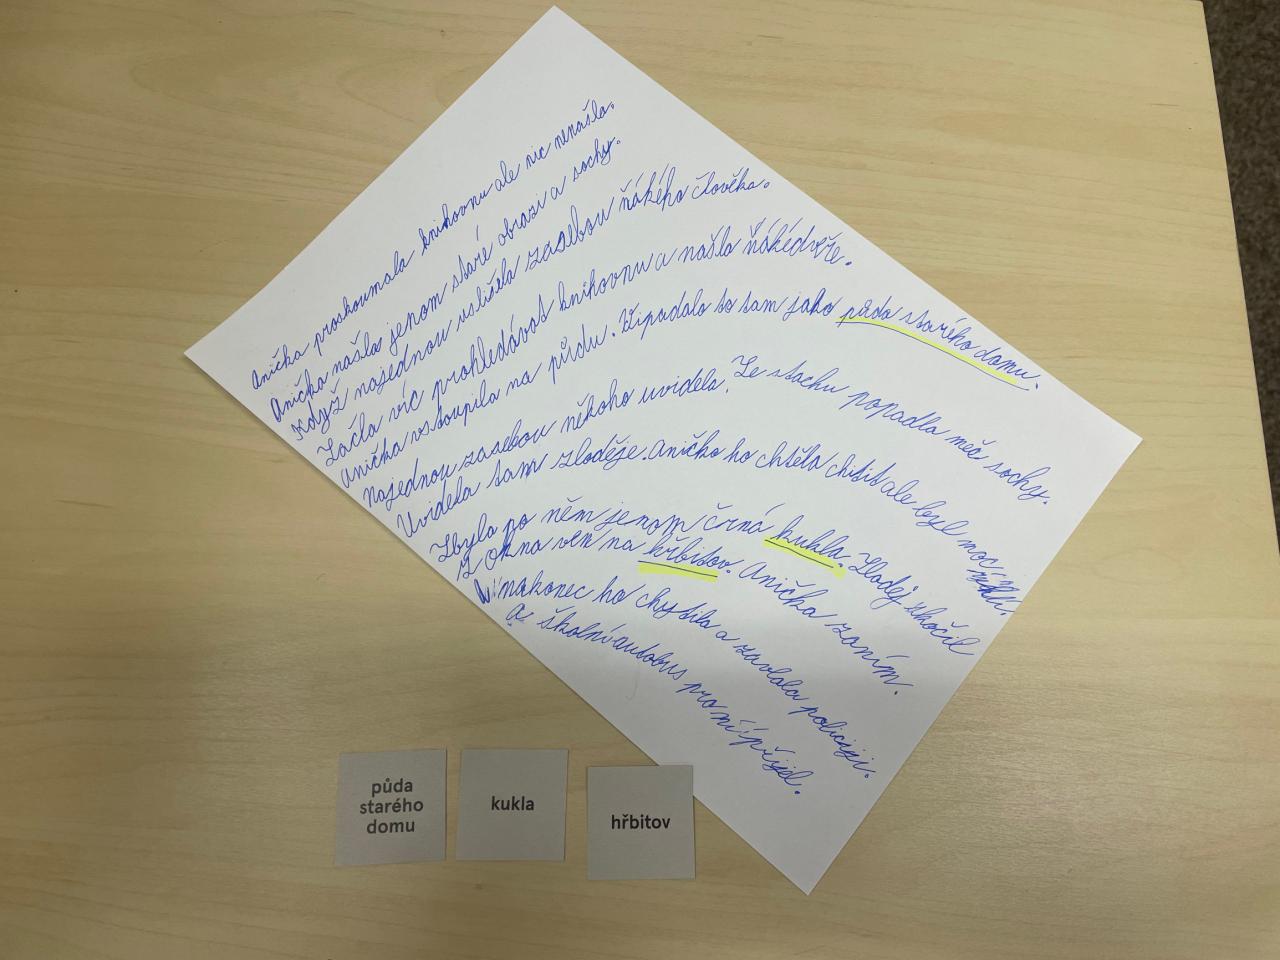 Anička proskoumala knihovnu ale nic nenašla.
Anička našla jenom staré obrazi a sochy.
Když najednou uslišela zasebou ňákého člověka.
Začla víc prohledávat knihovnu a našla ňákédveře.
Anička vstoupila na půdu. Vipadalo to tam jako půda starého domu.
Najednou zasebou někoho uvidela. Ze stachu popadla meč sochy.
Uvidela tam zloděje. Anička ho chtěla chitit ale byl moc
Zbyla po něm jenom črná kukla. Zloděj skočil
z okna ven na hřbitov. Anička zaním.
nakonec ho chytila a zavolala policiji.
a školní autobus pro ní přijel.
půda
starého
domu
kukla
hřbitov